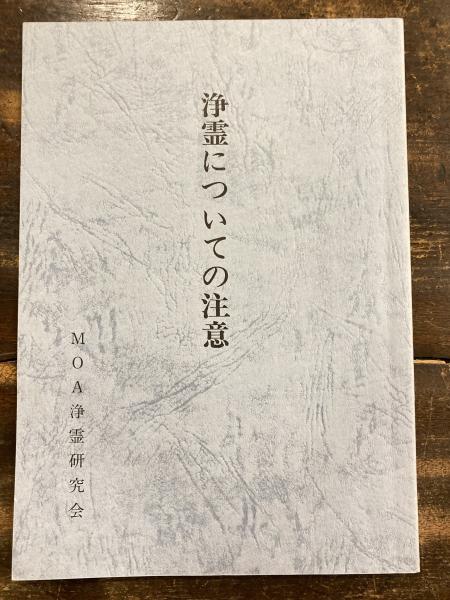 浄霊についての注意
MOA浄霊研究会